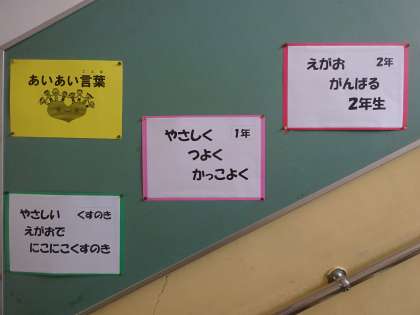 あいあい言葉
やさしい くすのき
えがおで
にこにこくすのき
やさしく 1年
つよく
かっこよく
えがお 2年
がんばる
2年生